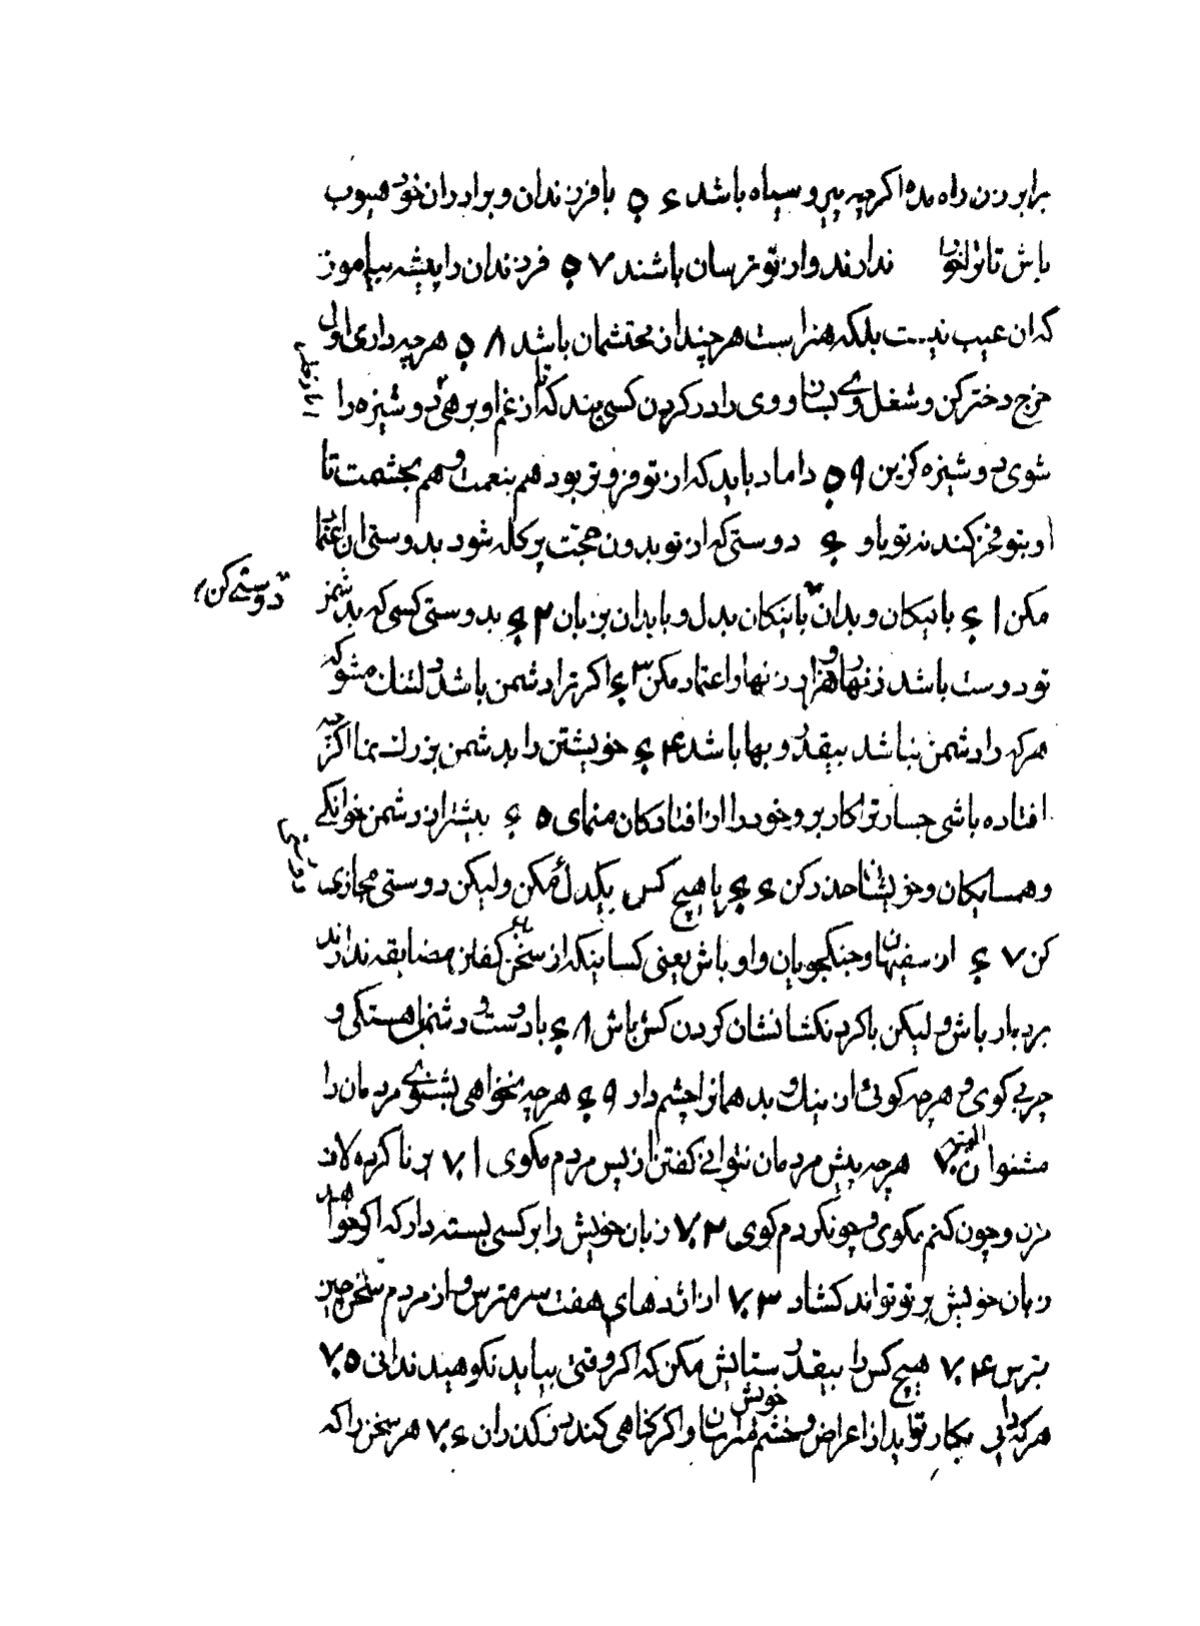 برابر زن راه مده اکرچه پیر و سیاه باشد ۵۶ با فرزندان و برادران خود هیوب
باش تا ترا خوار ندارند و از تو ترسان باشند ۵۷ فرزندان را پیشه بیاموز
که ان عیب نیست بلکه هنر است هر چند از محتشمان باشد ۵۸ هرچه داری اول
خرج دختر کن و شغل وی بساز و وی را در کردن کسی بند که تا از غم او برهی دوشیزه را
شوی دوشیزه کزین ۵۹ داماد باید که از تو فروتر بود هم بنعمت و هم بحشمت تا
او بتو فخر کند نه تو باو ۶۰ دوستی که از تو بدون حجت پر کله شود بدوستی او اعتماد
مکن ۶۱ با نیکان و بدان با نیکان بدل و با بدان بزبان ۶۲ بدوستی کسی که بدشمن
دوستی کن
تو دوست باشد زنهار و هزار زنهار اعتماد مکن ۶۳ اکر ترا دشمن باشد دلتنک مشو که
هر که را دشمن نباشد بیقدر و بها باشد ۶۴ خویشتن را بدشمن بزرک نما اکرچه
افتاده باشی خود را از افتادکان منمای ۶۵ بیشتر از دشمن خوانکی
و همسایکان و خویشان حذر کن ۶۶ با هیچ کس یکدل مکن ولیکن دوستی مجازی
کن ۶۷ از سفیهان و جنکجویان و اوباش یعنی کسانیکه از سخن کفتن مضایقه ندارند
بردبار باش ولیکن با کردنکشان کردن کش باش ۶۸ با دوست و دشمن باهستکی و
چربی کوی و هرچه کوئی از نیک و بد همانرا چشم دار ۶۹ هرچه نخواهی بشنوی مردمان را
مشنوان ۷۰ هرچه پیش مردمان نتوانی کفتن از پس مردم مکوی ۷۱ بر ناکرده لاف
مزن و چون کنم مکوی و چونکردم کوی ۷۲ زبان خویش را بر کسی بسته دار که اکر خواهد
زبان خویش بر تو تواند کشاد ۷۳ از اژدهای هفت سر مترس و از مردم سخن چین
بترس ۷۴ هیچ کس را بیقدر ستایش مکن که اکر وقتی بباید نکوهید ندانی ۷۵
هر که را بی تو بکار براید از اعراض و خشم خویش مترسان و اکر کناهی کند درکذران ۷۶ هر سخن را که